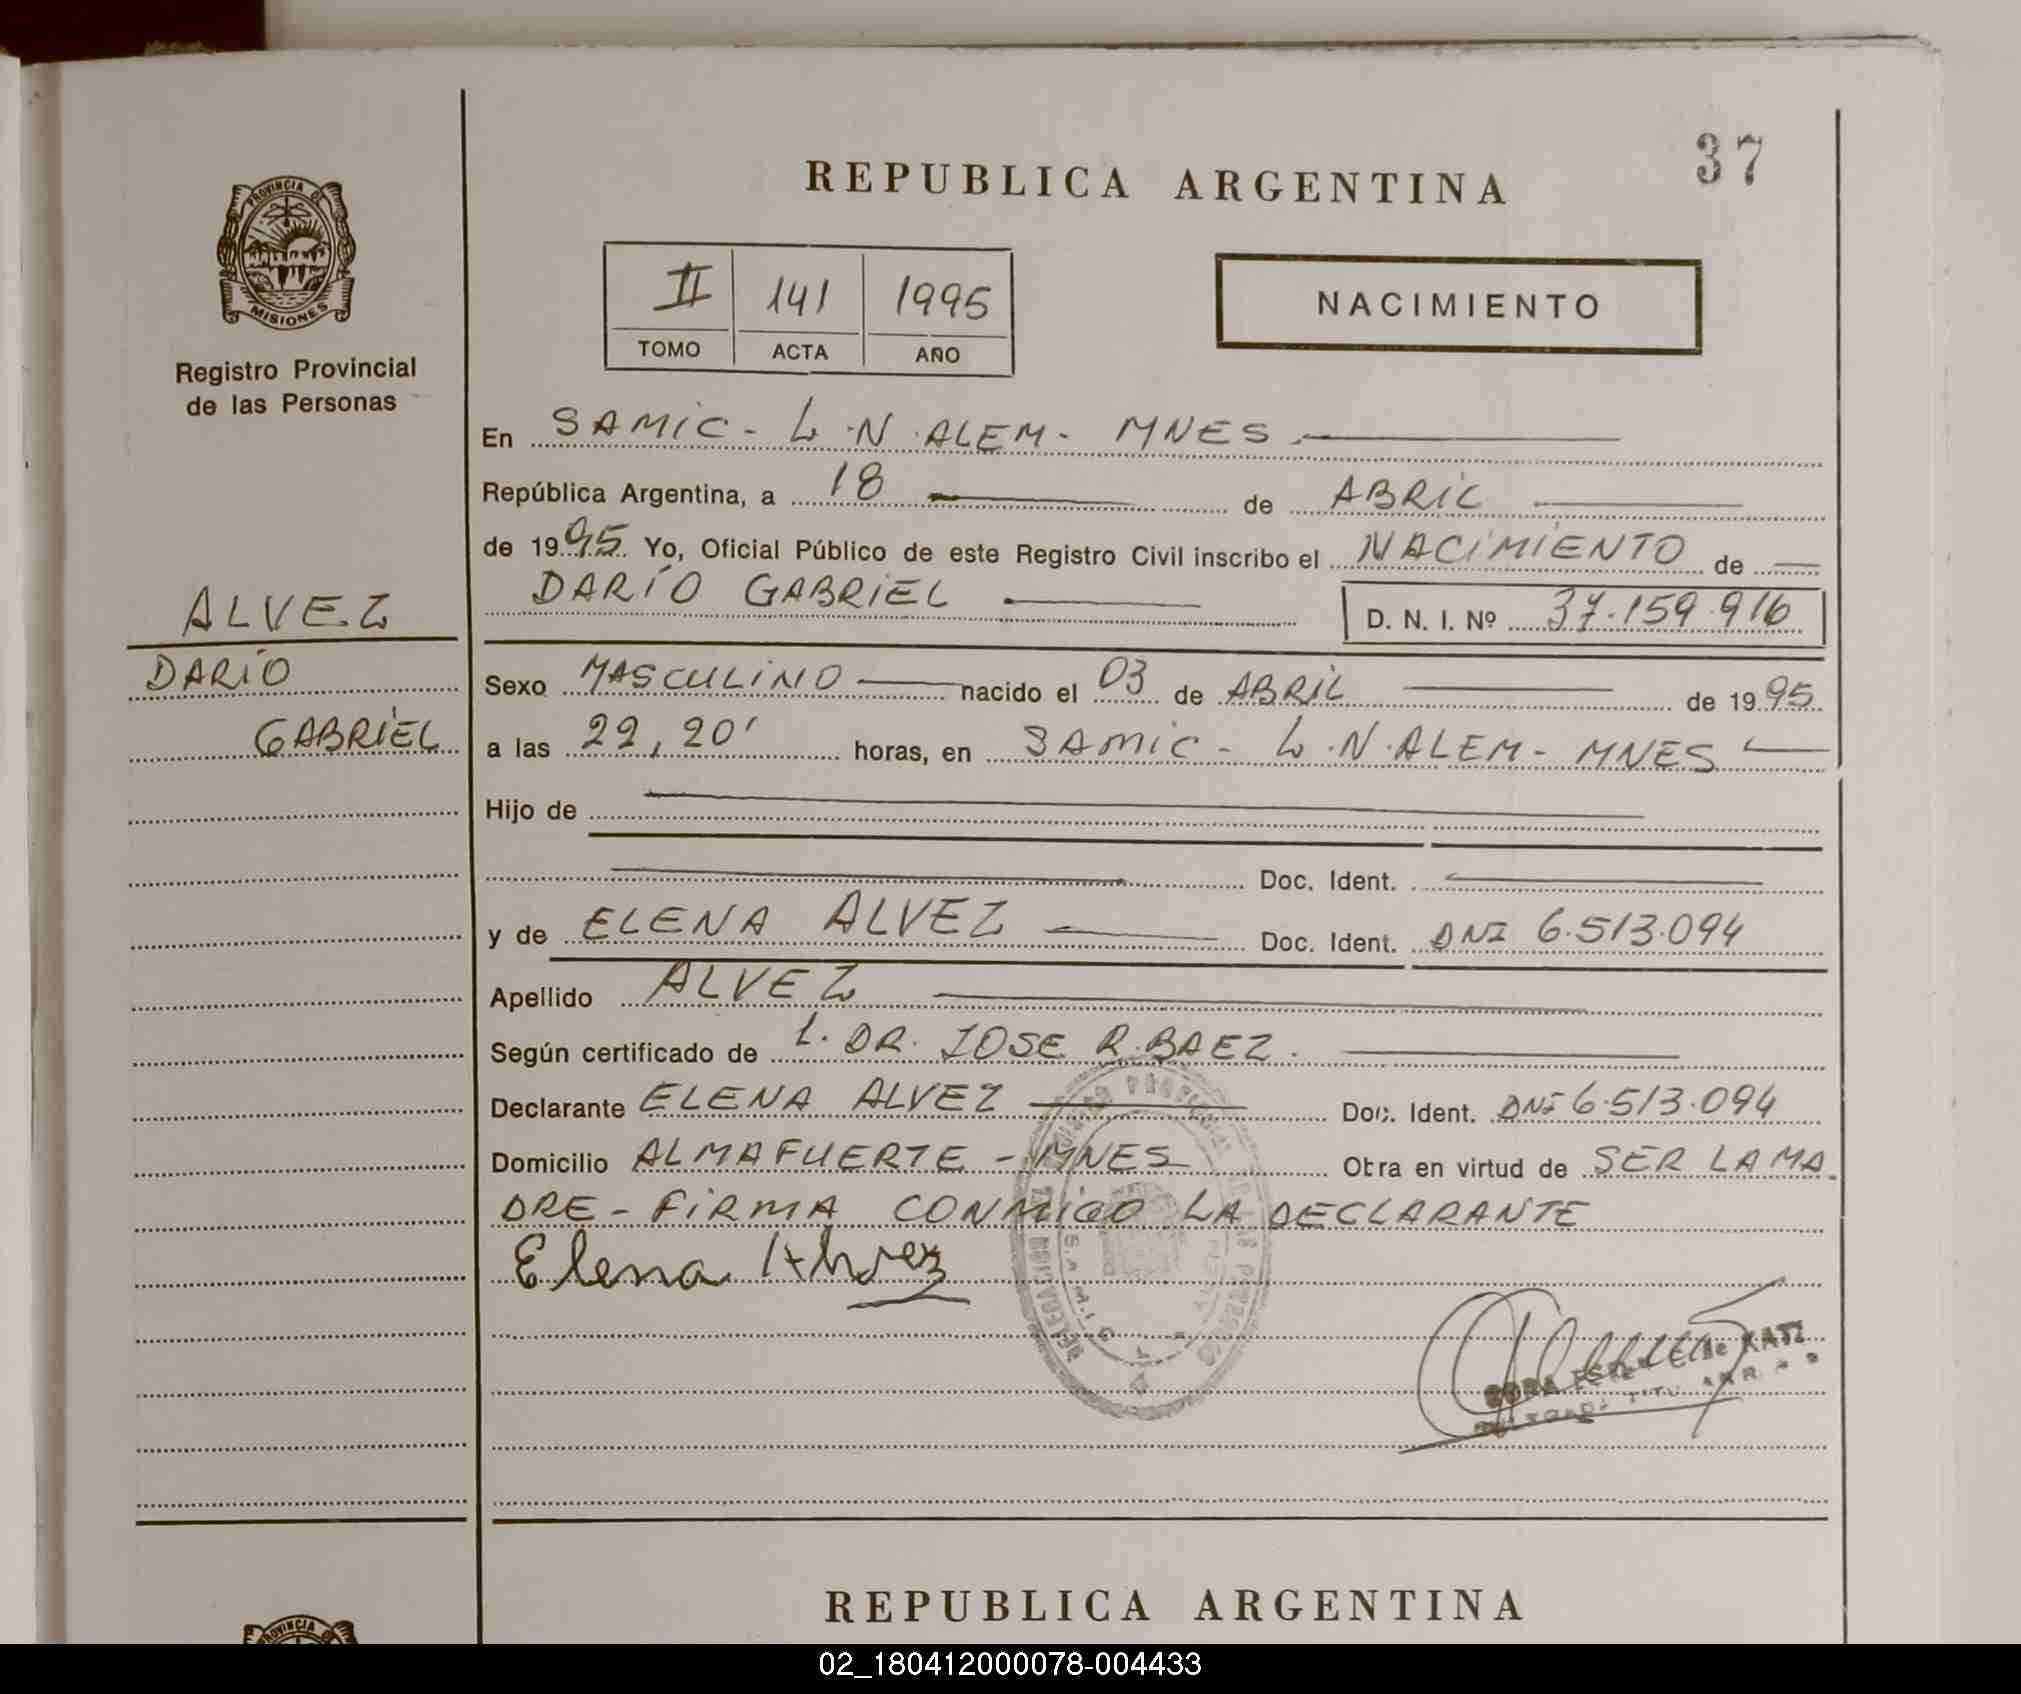 37
REPUBLICA ARGENTINA
PROVINCIA DE
MISIONES
Registro Provincial
de las Personas
II 141 1995
TOMO ACTA AÑO
NACIMIENTO
En SAMIC - L.N. ALEM - MNES.
República Argentina, a 18 de ABRIL
de 1995 Yo, Oficial Público de este Registro Civil inscribo el NACIMIENTO de
DARÍO GABRIEL D. N. I. Nº 37.159.916
ALVEZ
DARÍO
GABRIEL
Sexo MASCULINO nacido el 03 de ABRIL de 1995
a las 22,20' horas, en SAMIC - L.N. ALEM - MNES
Hijo de
Doc. Ident.
y de ELENA ALVEZ Doc. Ident. DNI 6.513.094
Apellido ALVEZ
Según certificado de 1. DR. JOSE R. BAEZ.
Declarante ELENA ALVEZ Doc. Ident. DNI 6.513.094
Domicilio ALMAFUERTE - MNES Otra en virtud de SER LA MA-
DRE - FIRMA CONMIGO LA DECLARANTE
Elena Alvez
REPUBLICA ARGENTINA
PROVINCIA
02_180412000078-004433